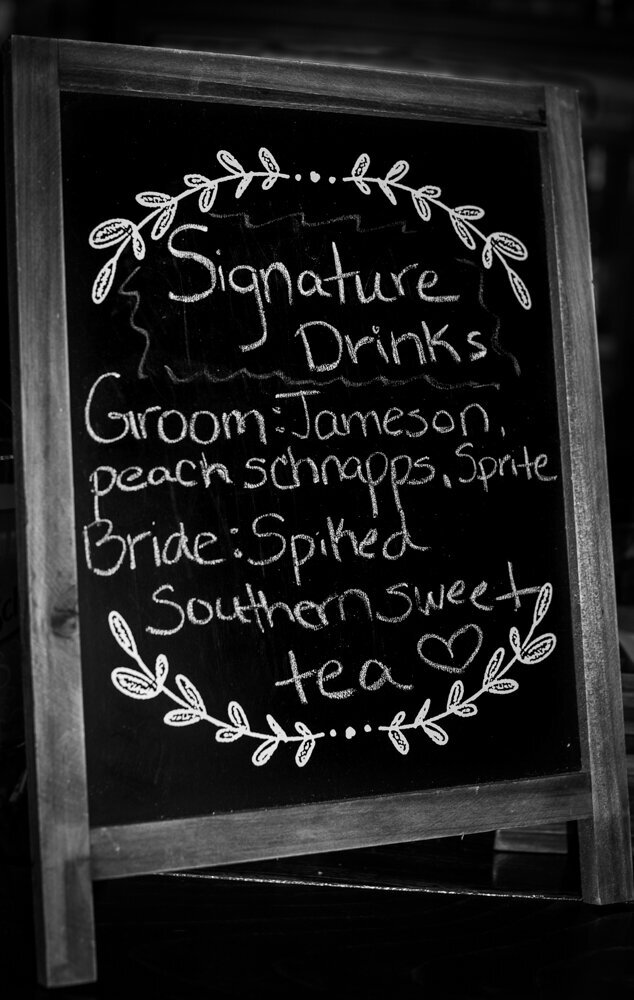 Signature
Drinks
Groom: Jameson,
peach schnapps, Sprite
Bride: Spiked
Southern sweet
tea